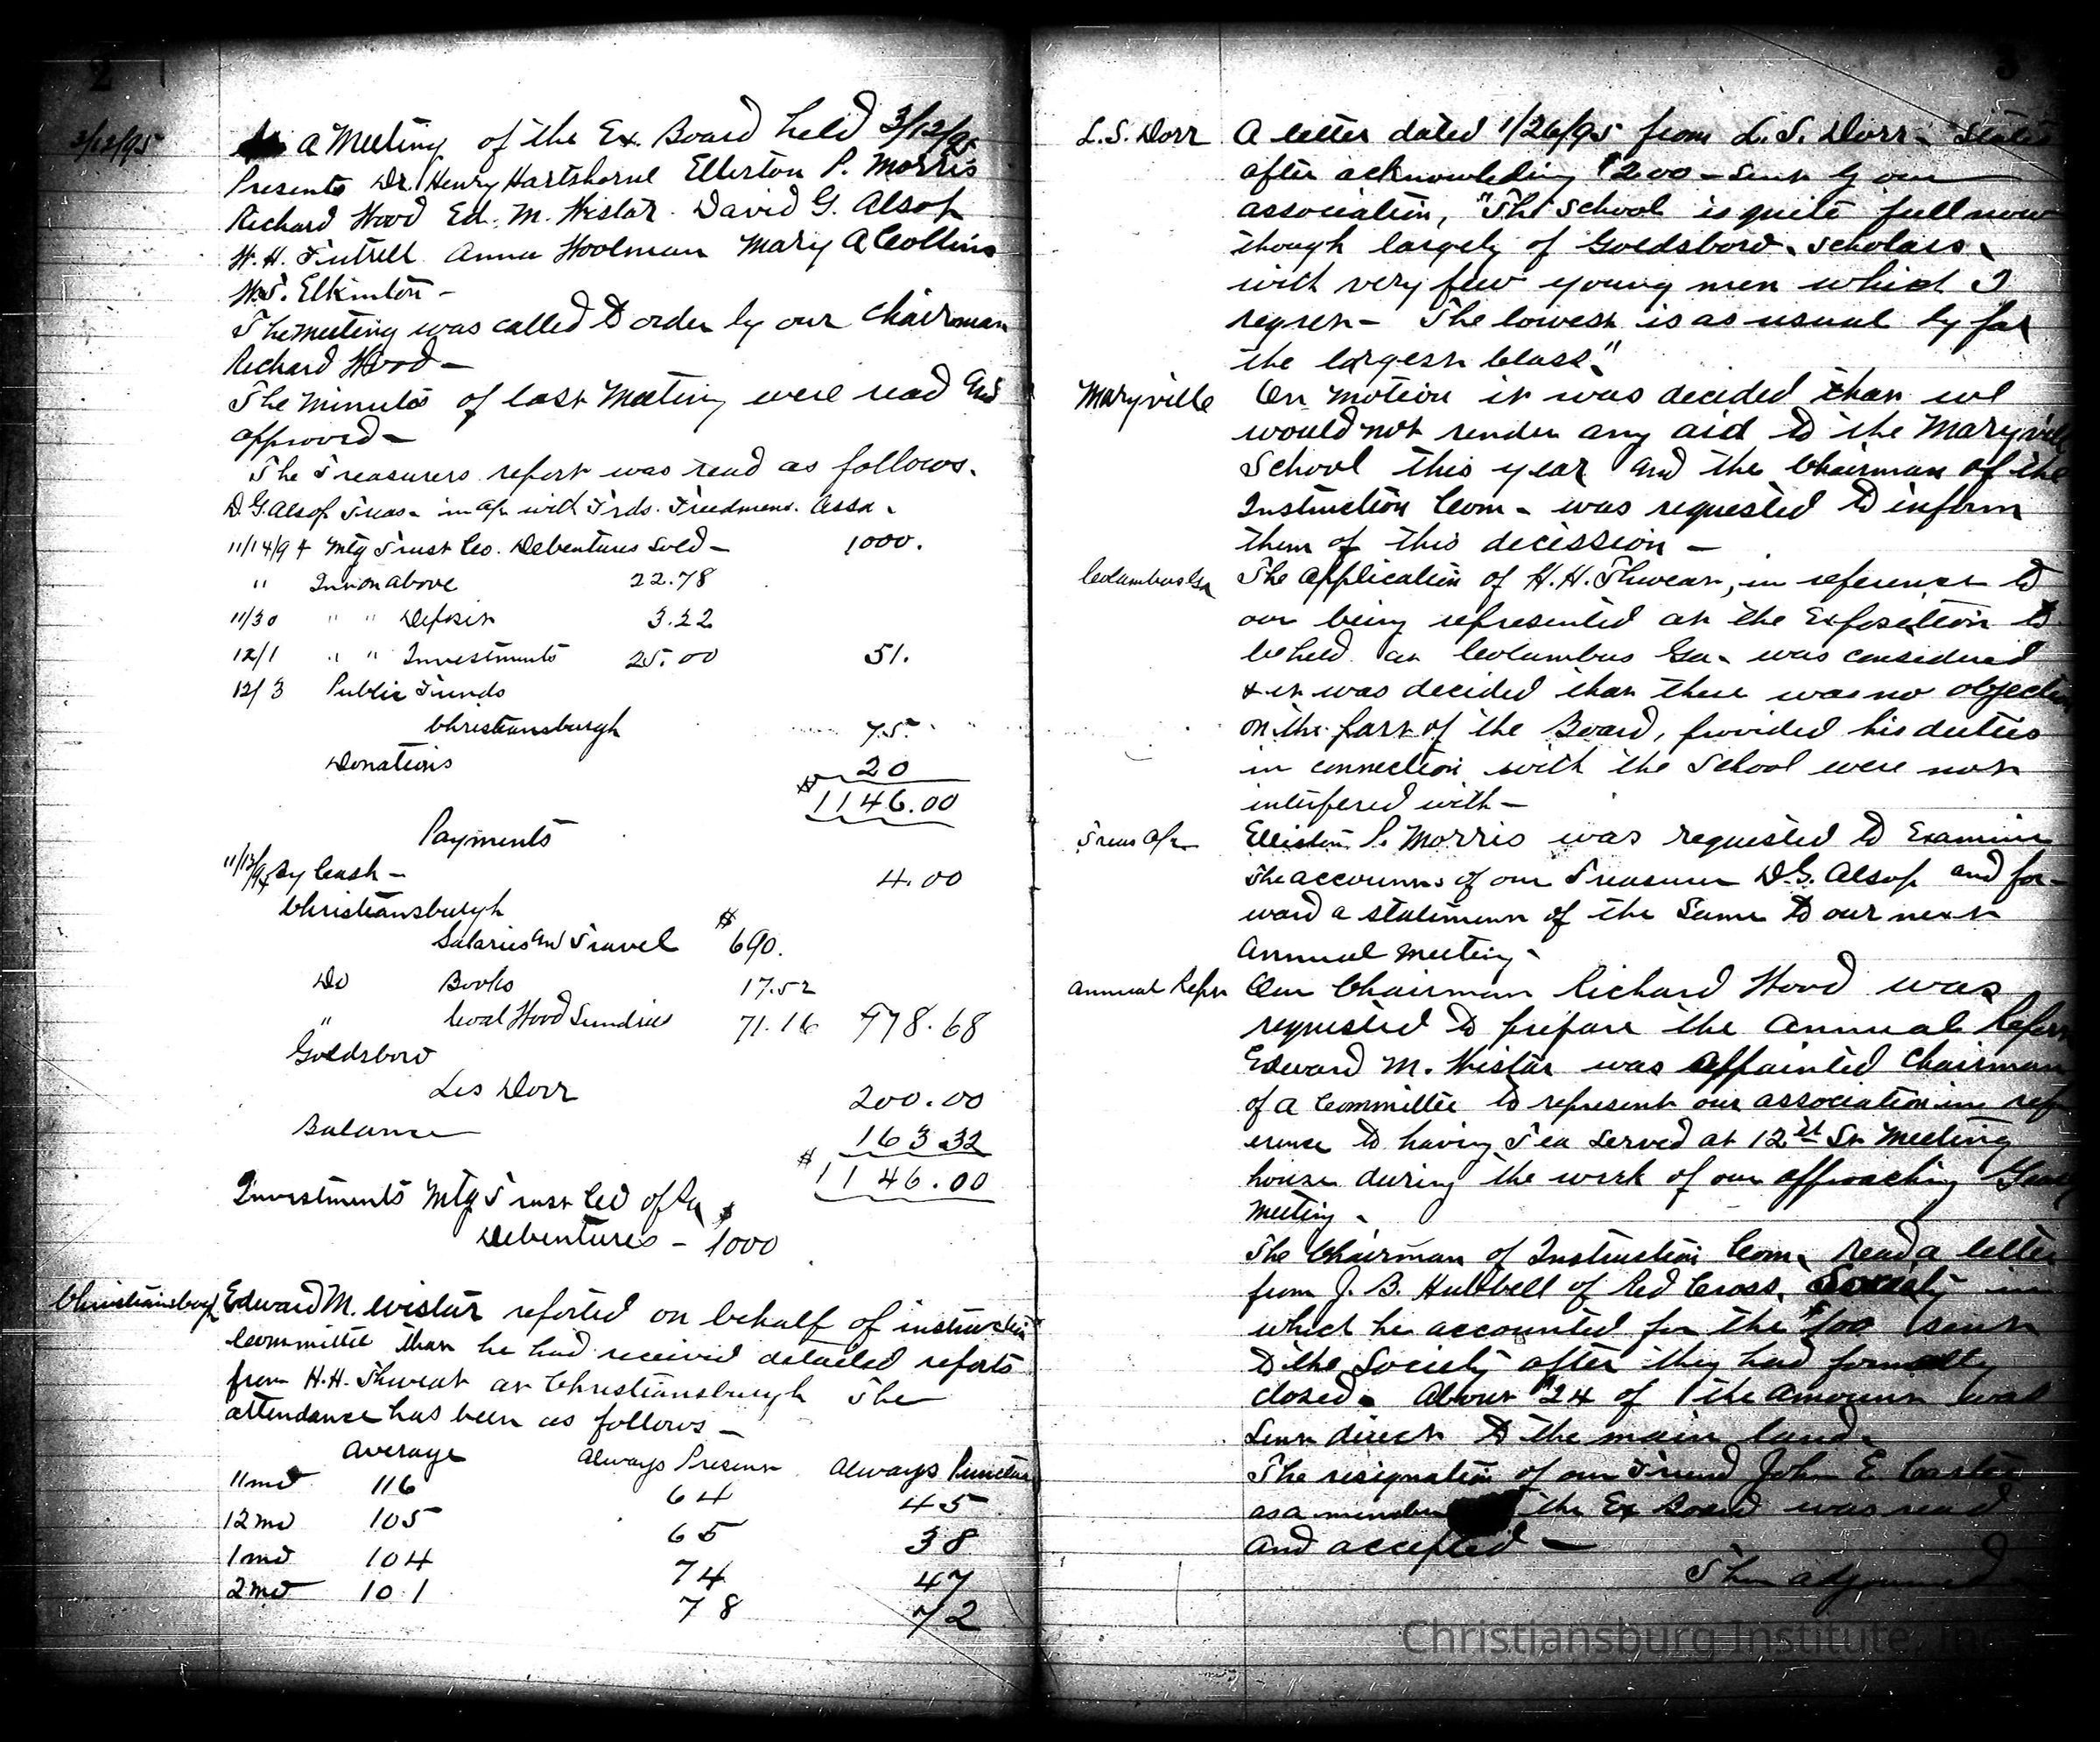 2
3/12/95
a Meeting of the Ex. Board held 3/12/95
Presents Dr. Henry Hartshorne Elliston P. Morris
Richard Wood Ed. M. Wistar. David G. Alsop
W. H. Futrell Anna Woolman Mary A Collins
W.T. Elkinton -
The meeting was called to order by our Chairman
Richard Wood -
The Minutes of last Meeting were read and
approved -
The Treasurers report was read as follows.
D. G. Alsop Treas - in a/c with Frds. Freedmens. Assn.
11/14/94 Mtg Trust Co. Debentures Sold - 1000.
" Int on above 22.78
11/30 " " Deposit 3.22
12/1 " " Investments 25.00 51.
12/3 Public Funds
Christiansburgh 75.
Donations 20
$ 1146.00
Payments
11/13/94 By Cash - 4.00
Christiansburgh
Salaries and Travel $690.
Do Books 17.52
" Coal Wood Sundries 71.16 778.68
Goldsboro
Les Dorr 200.00
Balance 163.32
$ 1146.00
Investments Mtg Trust Co of Pa
Debentures - $1000
Christiansburgh Edward M. Wistar reported on behalf of instruction
Committee that he had received detailed reports
from H.H. Thweat at Christiansburgh The
attendance has been as follows -
Average Always Present Always Punctual
11mo 116 64 45
12mo 105 65 38
1mo 104 74 47
2mo 101 78 72
3
L.S. Dorr A letter dated 1/26/95 from L.S. Dorr - States
after acknowleding $200 - sent by our
association, "The School is quite full now
though largely of Goldsboro, scholars,
with very few young men which I
regret - The lowest is as usual by far
the largest Class."
Maryville On motion it was decided that we
would not render any aid to the Maryville
School this year and the Chairman of the
Instruction Com - was requested to inform
them of this decission -
Columbus Ga The application of H.H. Thweat, in reference to
our being represented at the Exposition to
be held at Columbus Ga - was considered
& it was decided that there was no objection
on the part of the Board, provided his duties
in connection with the School were not
interfered with -
Treas a/c Elliston P. Morris was requested to Examine
the accounts of our Treasurer D.G. Alsop and for-
ward a statement of the same to our next
Annual Meeting -
Annual Report Our Chairman Richard Wood was
requested to prepare the Annual Report
Edward M. Wistar was appointed Chairman
of a Committee to represent our association in ref
erence to having Tea served at 12th St Meeting
house during the week of our approaching Yearly
Meeting -
The Chairman of Instruction Com. read a letter
from J. B. Hubbell of Red Cross, Society in
which he accounted for the $100 sent
to the Society after they had formally
closed. About $24 of the amount was
sent direct to the main land.
The resignation of our Friend John E. Carter
as a member the Ex Board was read
and accepted -
Then adjourned
Christiansburg Institute, Inc